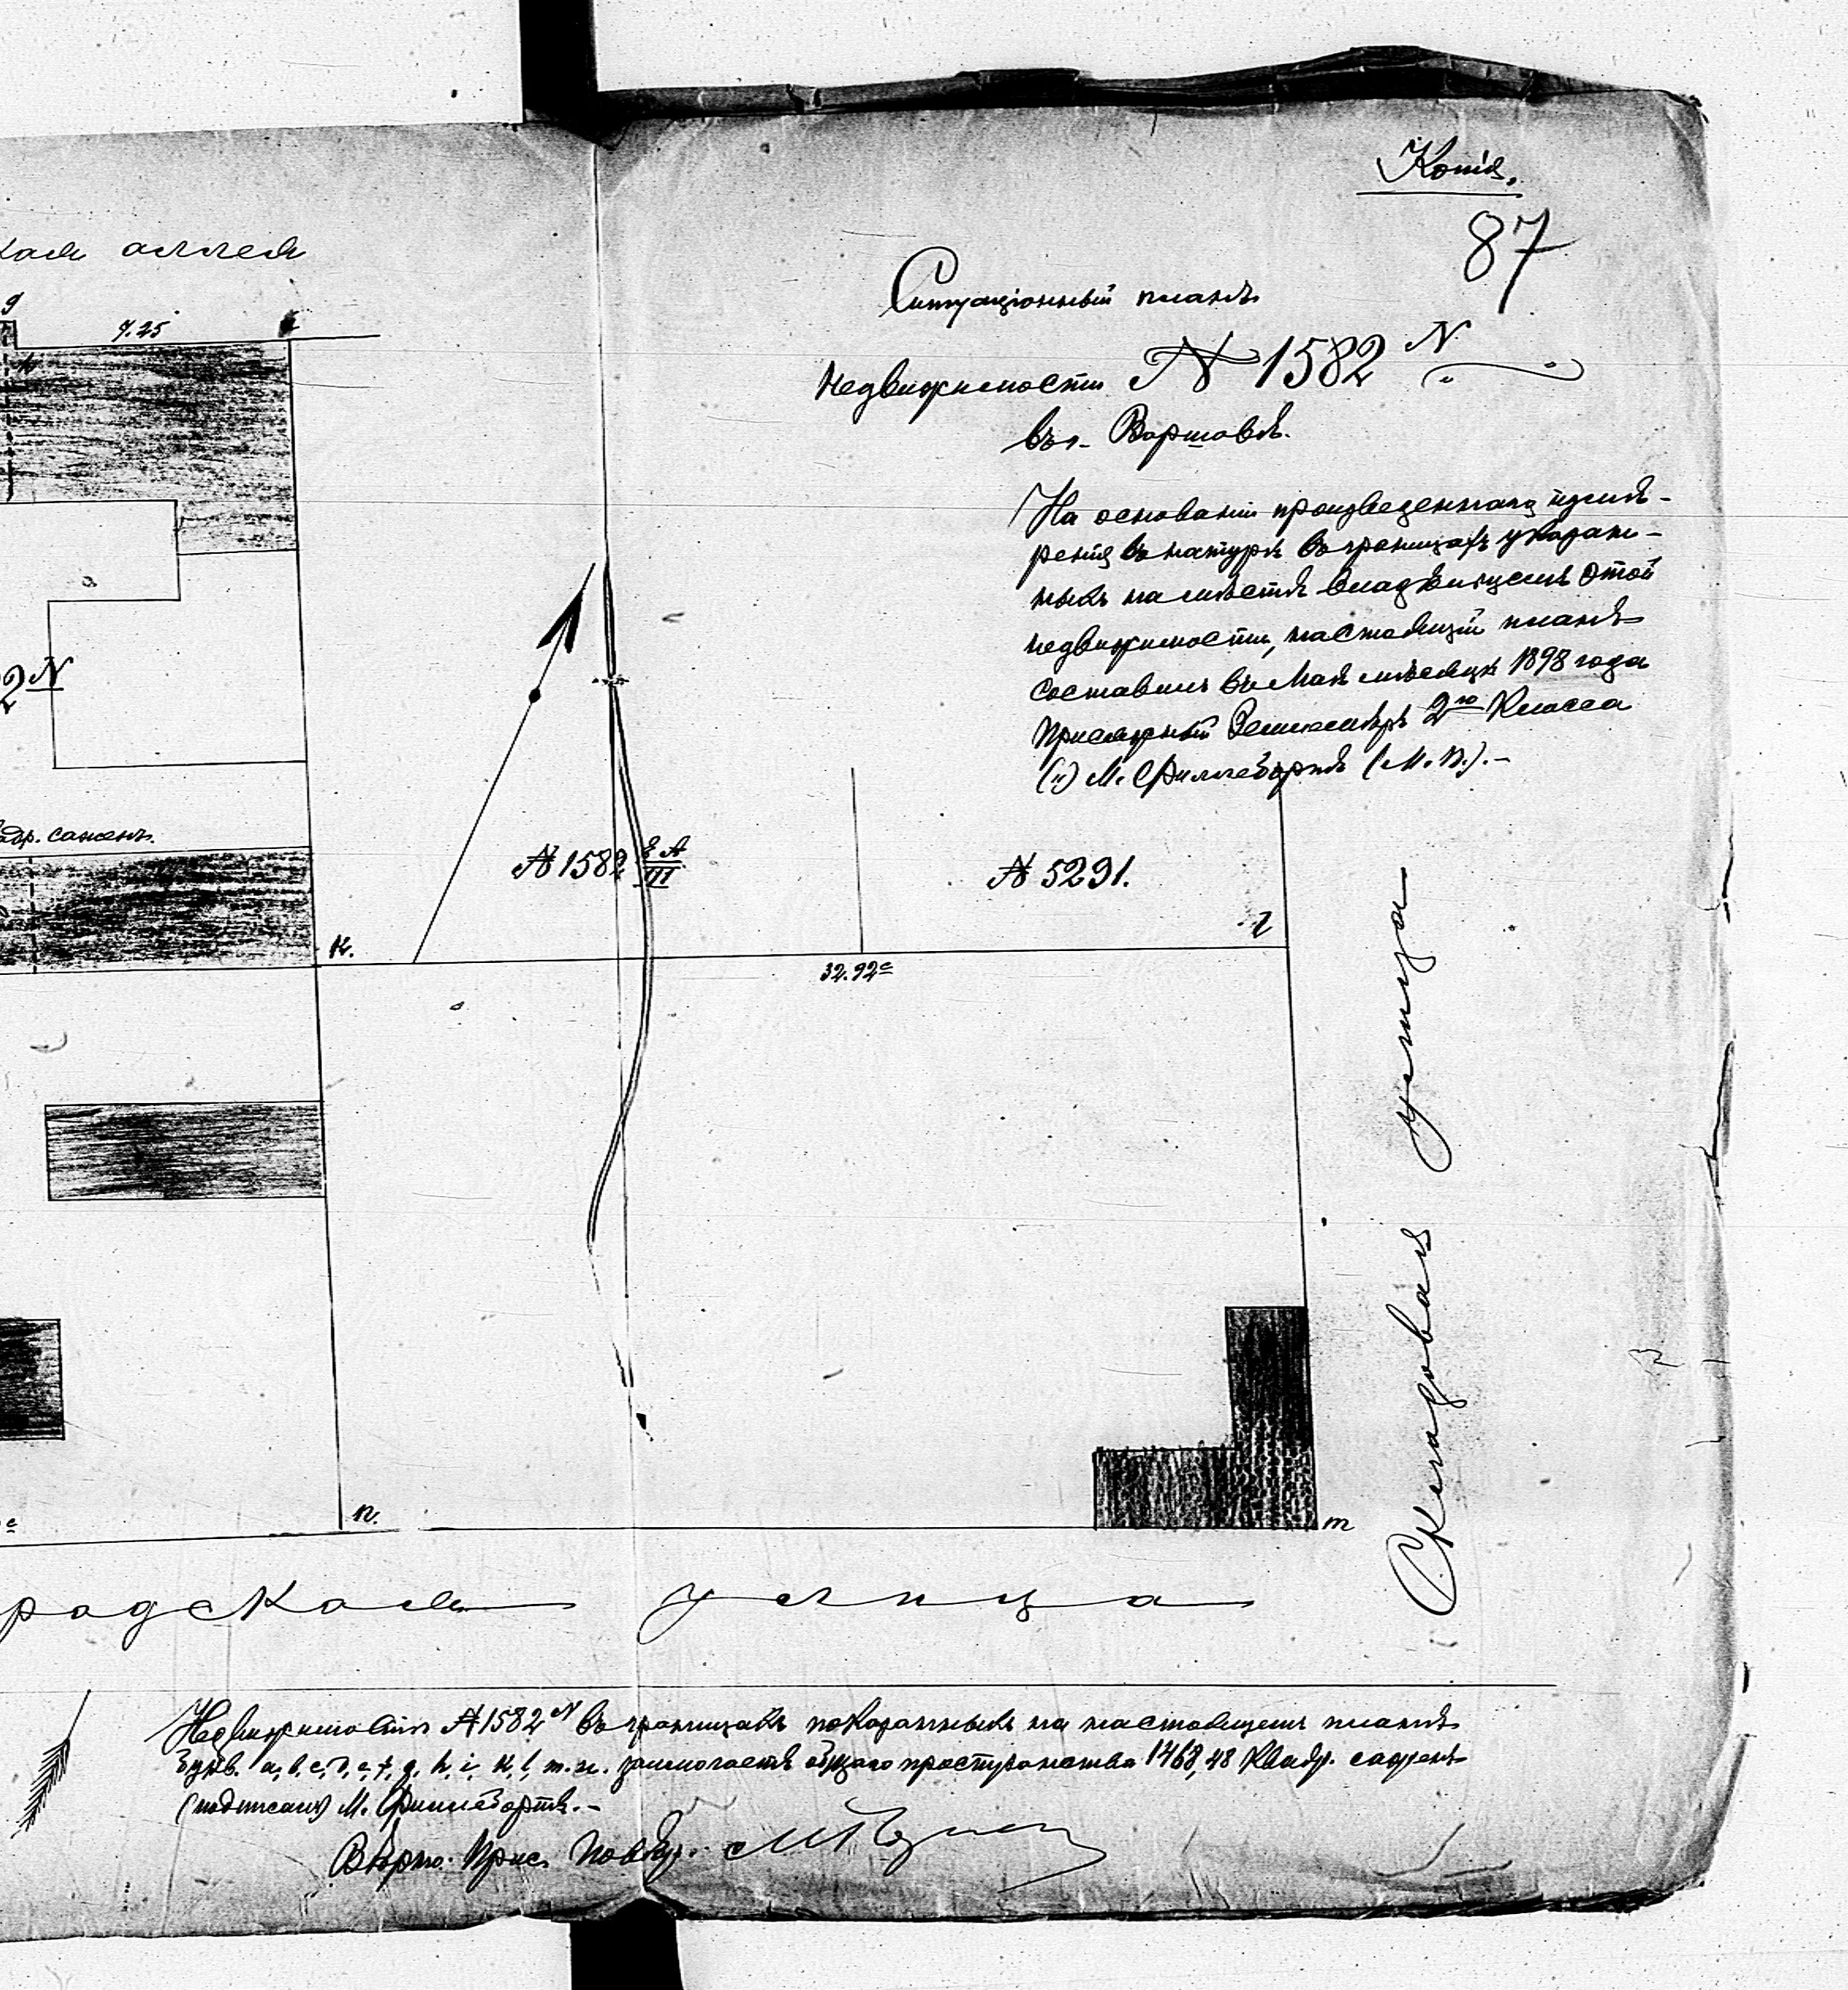 Копія.
87
Ситуаціонный планъ
недвижимости № 1582 N
въ г. Варшавѣ.
На основаніи произведеннаго измѣ-
ренія въ натурѣ въ границахъ указан-
ныхъ на мѣстѣ владѣльцемъ этой
недвижимости, настоящій планъ
составилъ въ Маѣ мѣсяцѣ 1898 года
Присяжный Землемѣръ 2го Класса
(п) М. (М. П.).-
кая аллея
g
7.25
2 N
адр. сажень.
№ 1582 III
№ 5291.
к.
l
32.92с
n.
m
Складовая улица
радская улица
Недвижимость № 1582 N въ границахъ показанныхъ на настоящемъ планѣ
букв. a, b, c, d, e, f, g, h, i, k, l, m. n. заключаетъ общаго пространства 1468,48 Квадр. сажень
(подписалъ) М.
Вѣрно: Прис. Повѣр.